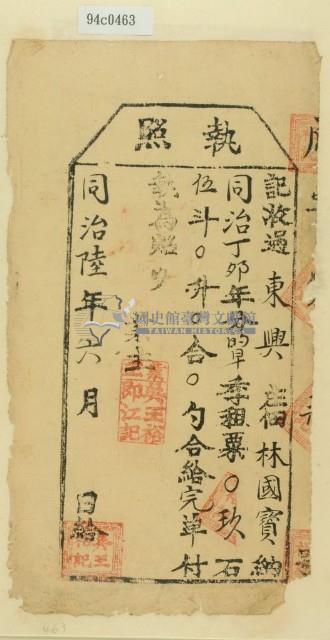 94c0463
執照
記收過東興莊佃林國寶納
同治丁卯年分的早季租粟〇玖石
伍斗〇升〇合〇勺合給完单付
執為炤
業主
同治陸年六月 日給
國史館臺灣文獻館
TAIWAN HISTORICA
463